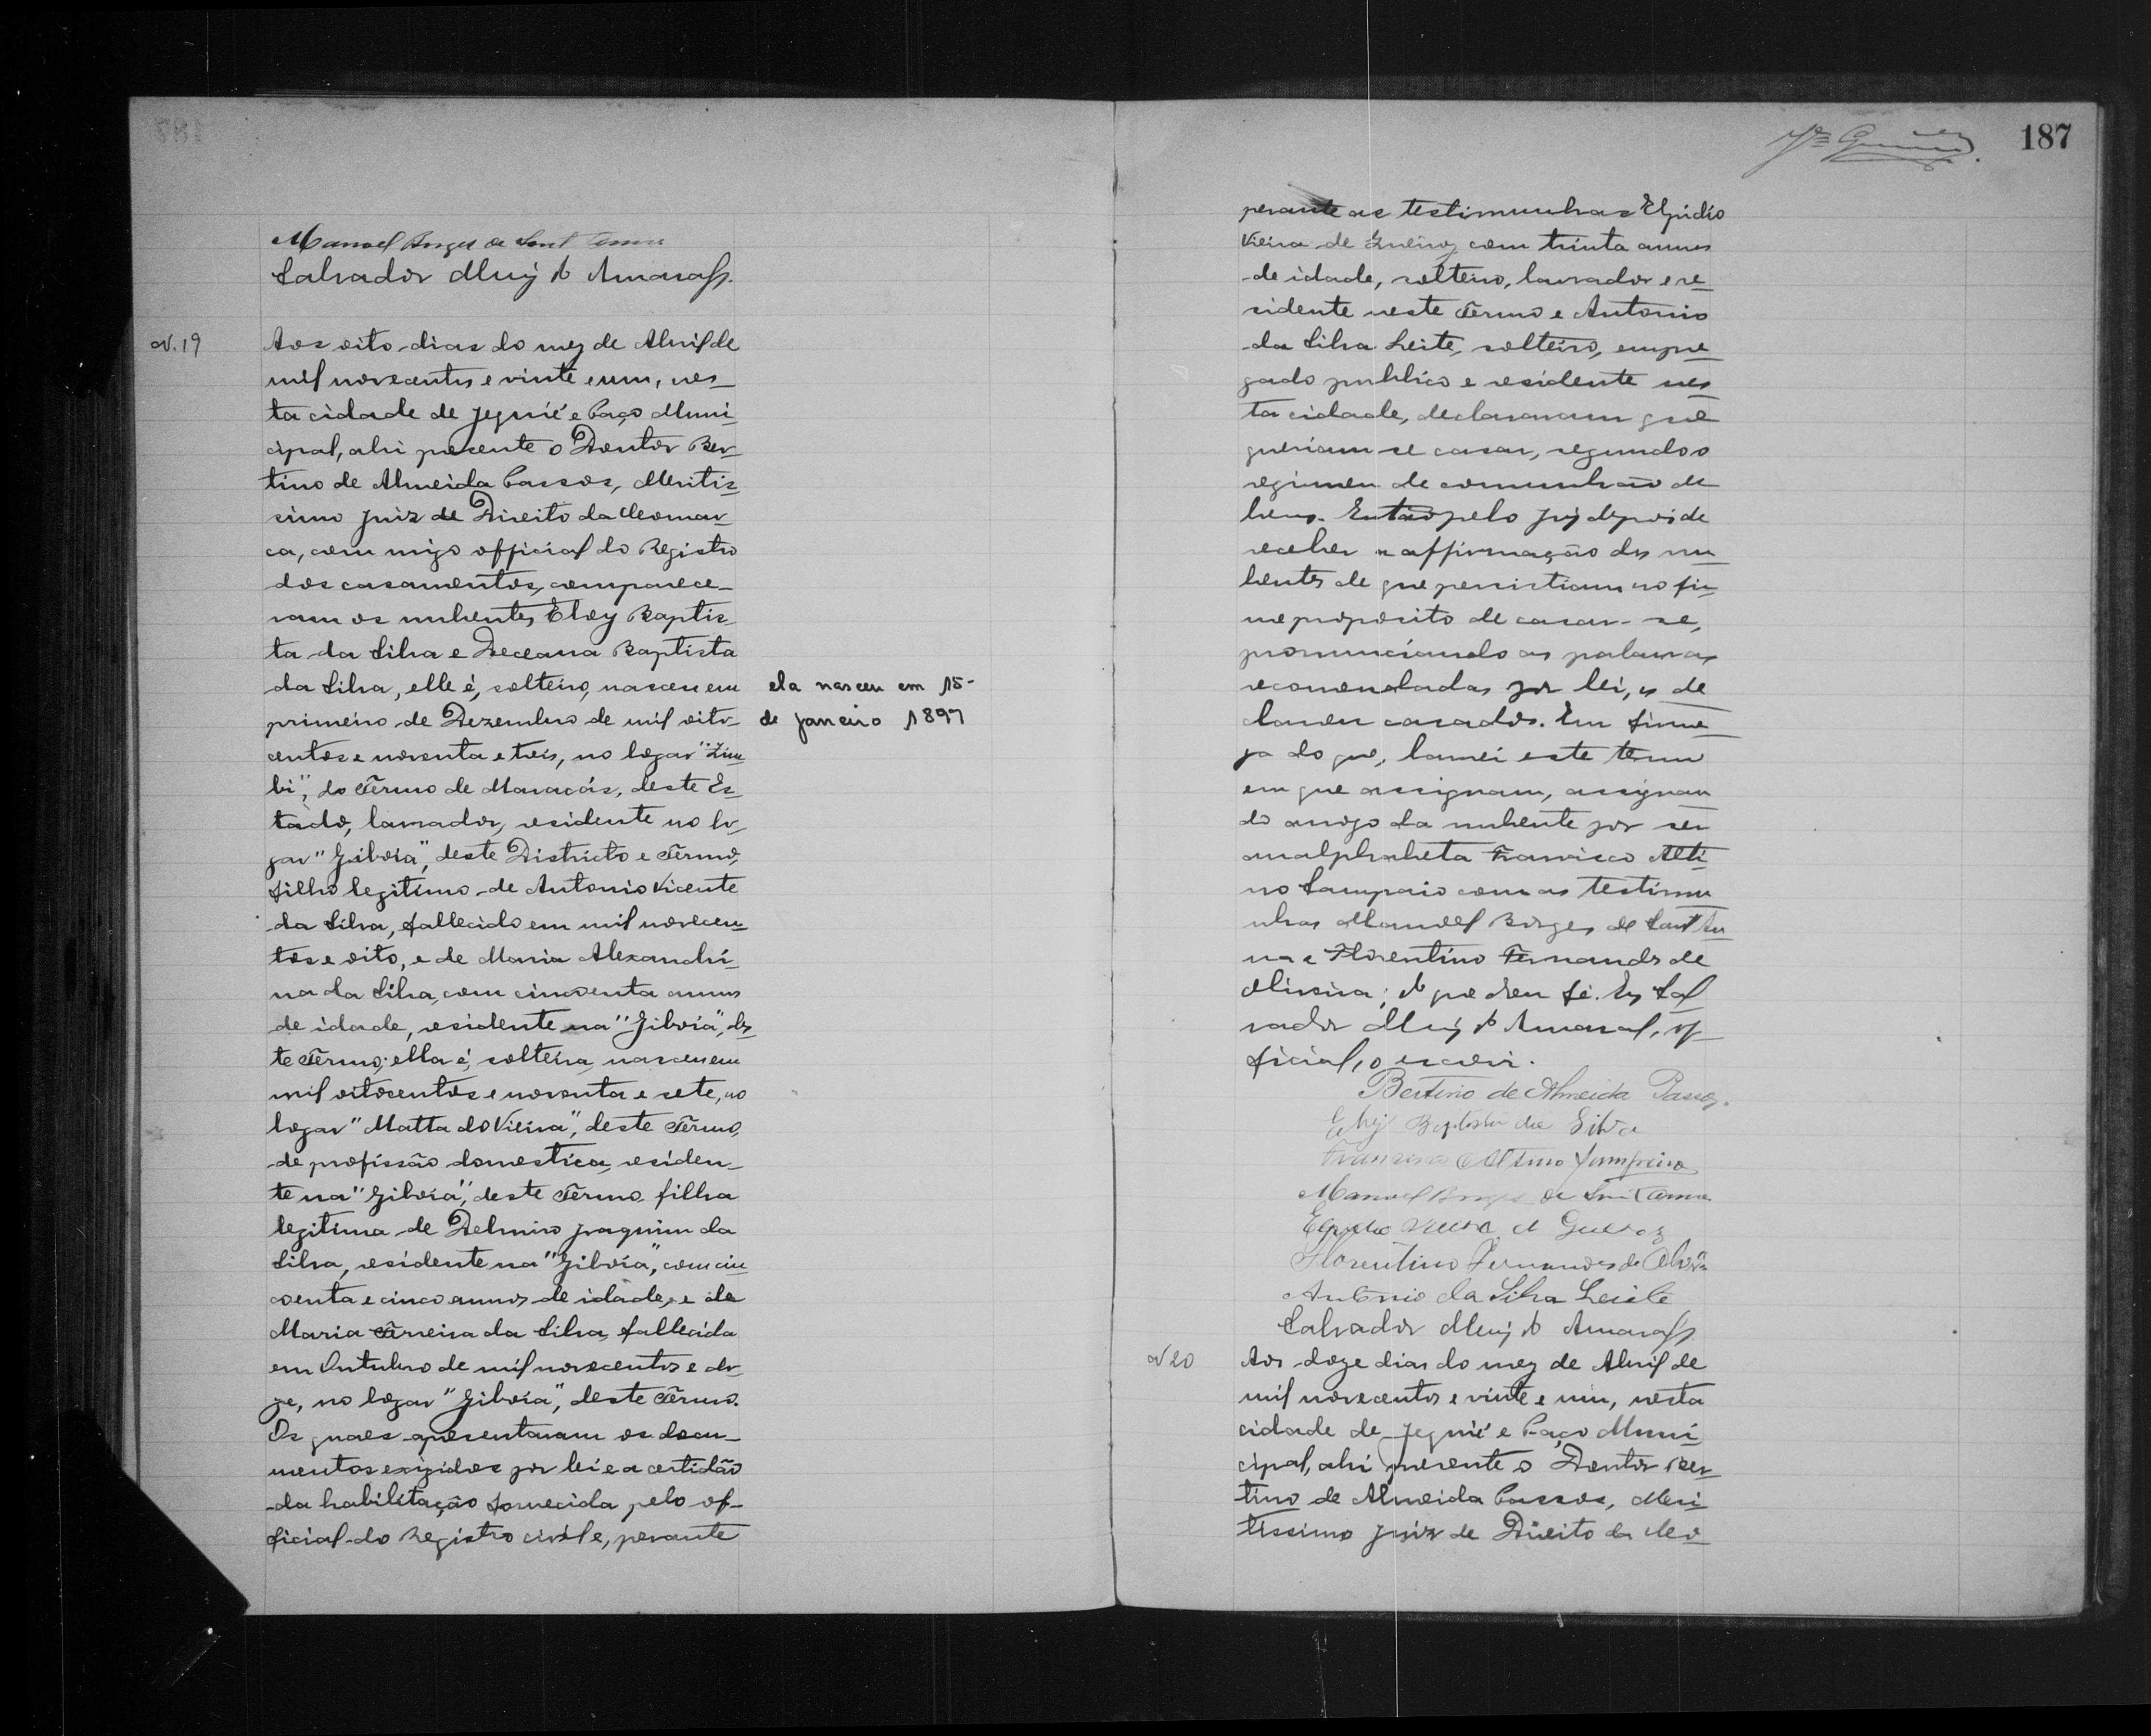 187
Manoel Borges de Sant'Anna
Salvador Muiz do Amaral
N. 19
Aos oito dias do mez de Abril de
mil novecentos e vinte e um, nes_
ta cidade de Jequié e Paço Muni
cipal, ahi presente o Doutor Ber_
tino de Almeida Passos, Meritis
simo Juiz de Direito da Comar_
ca, commigo official do Registro
dos casamentos, comparece_
ram os nubentes, Eloy Baptis_
ta da Silva e Deceana Baptista
da Silva, elle é, solteiro, nasceu em
primeiro de Dezembro de mil oito_
centos e noventa e treis, no logar "Zum
bi", do Termo de Maracás, deste Es_
tado, lavrador, residente no lo_
gar "Giboia", deste Districto e Termo,
filho legitimo de Antonio Vicente
da Silva, fallecido em mil novecen_
tos e oito, e de Maria Alexandri_
na da Silva, com cincoenta annos
de idade, residente na "Giboia", des_
te Termo; ella é, solteira, nasceu em
mil oitocentos e noventa e sete, no
logar "Matta do Vieira", deste Termo,
de profissão domestica, residen_
te na "Giboia", deste Termo, filha
legitima de Delmiro Joaquim da
Silva, residente na "Giboia", com cin_
coenta e cinco annos de idade, e de
Maria Ferreira da Silva, fallecida
em Outubro de mil novecentos e do_
ze, no logar "Giboia", deste Termo.
Os quaes apresentaram os docu_
mentos exigidos por lei e a certidão
da habilitação fornecida pelo of_
ficial do Registro civil e, perante
ela nasceu em 15-
de janeiro 1897
perante as testimunhas Elpidio
Vieira de Queiroz com trinta annos
de idade, solteiro, lavrador e re_
sidente neste Termo e Antonio
da Silva Leite, solteiro, empre_
gado publico e residente nes
ta cidade, declararam que
queriam se casar, segundo o
regimen de comunhão de
bens. Então pelo Juiz depois de
receber a affirmação dos nu_
bentes de que persistiam no fir_
me proposito de casar-se,
pronunciando as palavras
recomendadas por lei, os de_
clarou casados. Em firme_
za do que, lavrei este termo
em que assignam, assignan_
do a rogo da nubente por ser
analphabeta Francisco Alti_
no Sampaio com as testimu
nhas Manoel Borges de Sant'An_
na e Florentino Fernandes de
Oliveira; do que dou fé. Eu Sal_
vador Muiz do Amaral, of_
ficial, o escrevi.
Bertino de Almeida Passos.
Eloy Baptista da Silva
Francisco Altino Sampaio
Manoel Borges de Sant'Anna
Elpidio Vieira de Queiroz
Florentino Fernandes de Olivra
Antonio da Silva Leite
Salvador Muiz do Amaral
N 20
Aos doze dias do mez de Abril de
mil novecentos e vinte e um, nesta
cidade de Jequié e Paço Muni_
cipal, ahi presente o Doutor Ber_
tino de Almeida Passos, Meri_
tissimo Juiz de Direito da Co_